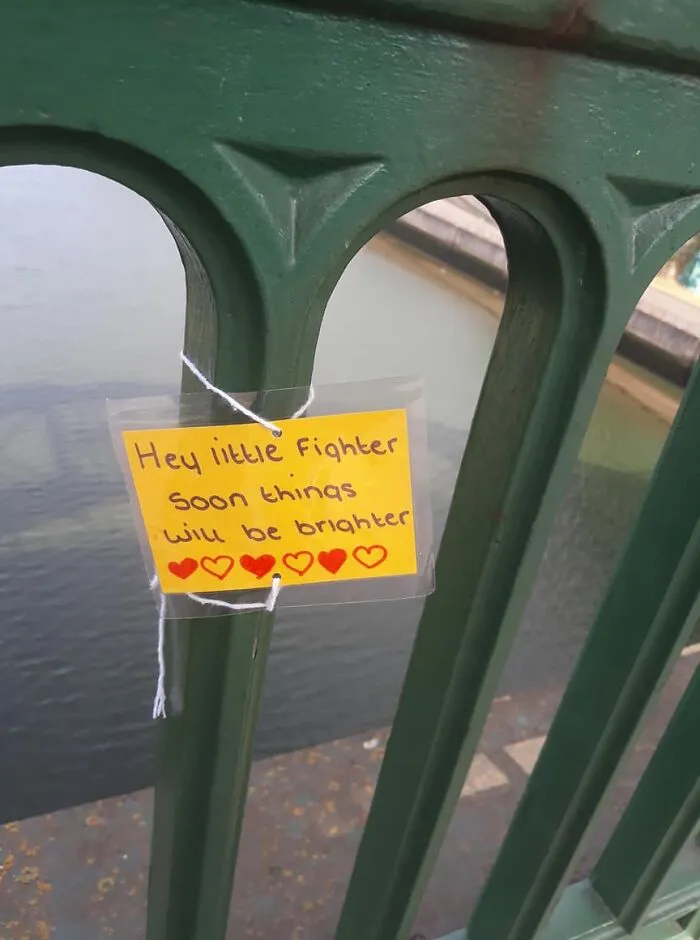 Hey little Fighter
Soon things
will be brighter